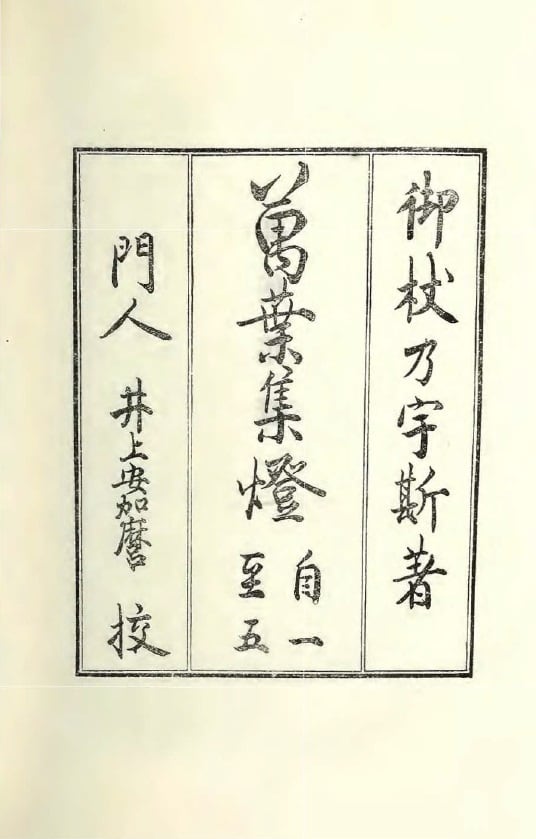 御杖乃宇斯著
萬葉集燈
自一
至五
門人 井上安加麿 挍